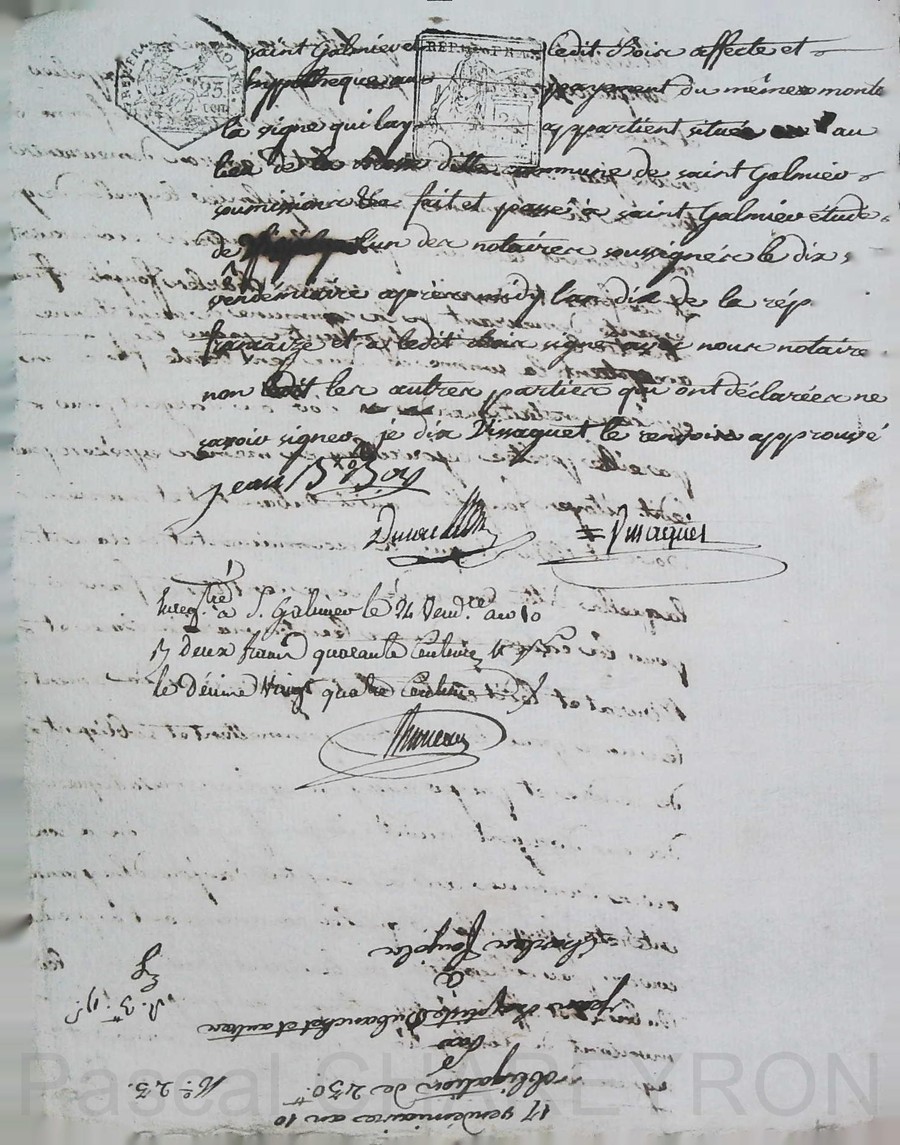 saint Galmier et ledit Boix affecte et
hypotheque au payement du mêmes monte
la vigne qui lay appartient située au
lieu de la ditte commune de saint Galmier
soumissions &a fait et passé à saint Galmier étude
de l'un des notaires soussignés le dix
vendémiaire apries midy l'an dix de la rép
francaize et a ledit Boix signé avec nous notaire
non ledit les autres parties qui ont déclarées ne
savoir signer je dix Vissaguet le renvoix approuvé
jean Bte Boix
Vissaguet
Enregtré à St Galmier le 24 Vendre an 10
R deux francs quarante Centimes
le décime vingt quatre Centimes
REP. FRA.
25
cen
17 vendémiaire an 10
obligation de 230tt
par
jean Baptiste Dubanchet et autres
à
Charles
No 23.